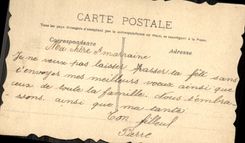 CARTE POSTALE
Tous les pays étrangers n'acceptent pas la correspondance au recto, se renseigner à la Poste.
Correspondance
Adresse
Ma chère Marraine
Je ne veux pas laisser passer ta fête sans
t'envoyer mes meilleurs vœux ainsi que
ceux de toute la famille. Nous t'embras
sons ainsi que ma tante.
Ton filleul
Pierre